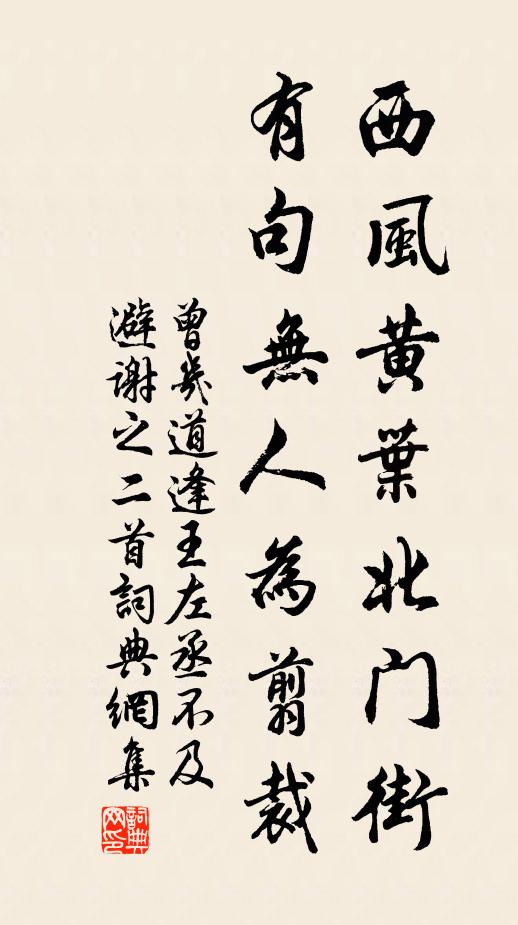 西風黃葉北門街
有句無人為剪裁
曾幾道逢王左丞不及
避謝之二首詞典網集
詞典
网印